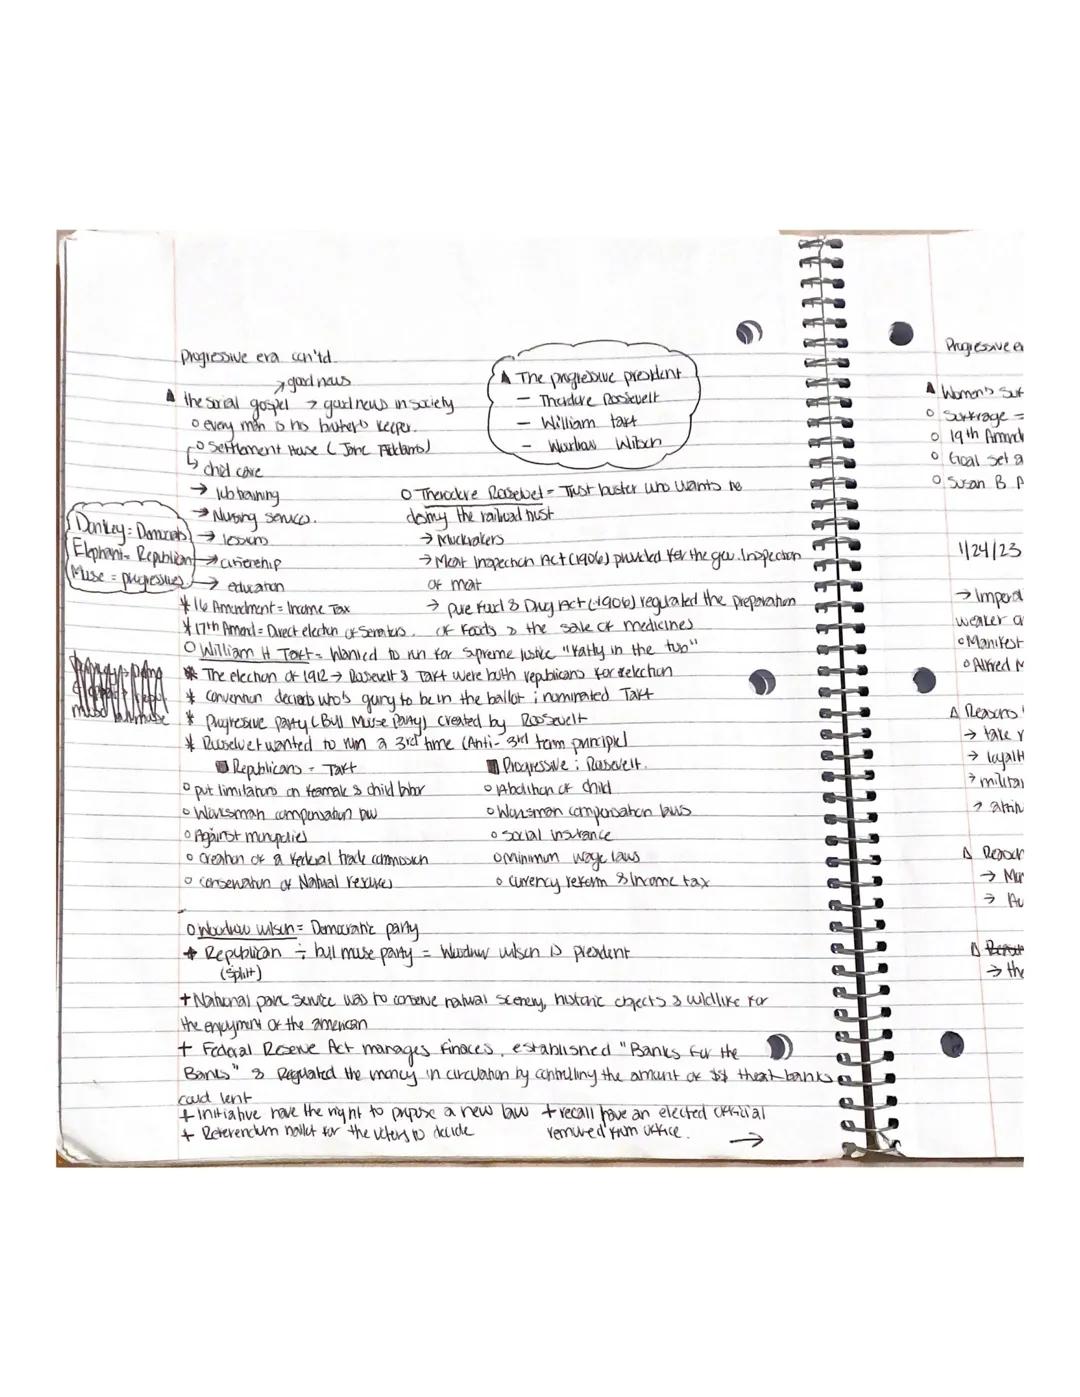 Progressive era con'td.
→ good news
▲ the social gospel → good news in society
o every man is his brother's keeper.
o Settlement House (Jane Addams)
↳ child care
→ job training
→ Nursing services.
→ lessons
→ citizenship
→ education
▲ The progressive president
- Theodore Roosevelt
- William taft
- Woodrow Wilson
Donkey = Democrats
Elephant = Republican
Muse = progressives
o Therodore Roosevelt = Trust buster who wants to
destroy the railroad trust
→ Muckrakers
→ Meat Inspection Act (1906) provided for the gov. Inspection
of meat
→ pure Food & Drug Act (1906) regulated the preparation
of foods & the sale of medicines
* 16 Amendment = Income Tax
* 17th Amend = Direct election of Senators.
o William H Taft = Wanted to run for supreme justice "Fatty in the tub"
* The election of 1912 → Roosevelt & Taft were both republicans for election
* convention decides who's going to be in the ballot ; nominated Taft
* Progressive party (Bull Muse Party) created by Roosevelt
* Roosevelt wanted to run a 3rd time (Anti-3rd term principle)
Republicans - Taft
o put limitations on female & child labor
o Worksman compensation law
o Against monopolies
o Creation of a federal trade commission
o conservation of Natural resources
Progressive : Roosevelt.
o Abolition of child
o Worksman compensation laws
o Social insurance
o minimum wage laws
o currency reform & Income tax
o Woodrow wilson = Democratic party
+ Republican ÷ bull muse party = Woodrow wilson is president
(split)
+ National park service was to conserve natural scenery, historic objects & wildlife for
the enjoyment of the american
+ Federal Reserve Act manages finaces, established "Banks for the
Banks" & Regulated the money in circulation by controlling the amount of $$ that banks
could lent
+ initiative have the right to propose a new law + recall have an elected official
+ Referendum ballot for the voters to decide removed from office. →
Progressive e
▲ Women's Suf
o Suffrage =
o 19th Amend
o Goal set a
o Susan B A
1/24/23
→ Imperial
weaker
o Manifest
o Alfred M
▲ Reasons
→ take
→ loyalt
→ militar
▲ Reason
→
→ Au
→ the